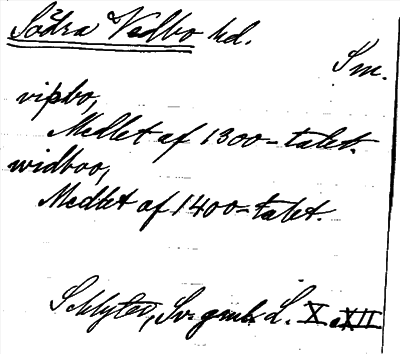 Södra Vedbo hd.
Sm.
vipbo,
Medlet af 1300-talet.
widboo,
Medlet af 1400-talet.
Schlyter, Sv gml L. X o XII